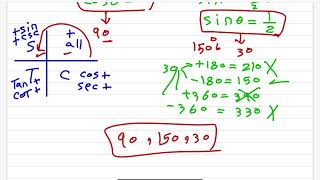 +sin
+csc
S
+
all
90
T
Tan+
cot+
C cos+
sec+
sinθ=1/2
150 30
30 +180=210 X
-180=150
+360=390 X
-360=330 X
90, 150, 30